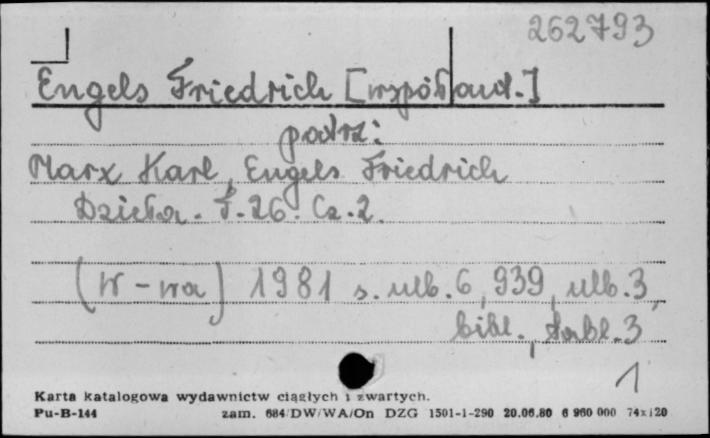 262793
Engels Friedrich [współaut.]
patrz:
Marx Karl, Engels Friedrich
Dzieła. T. 26. Cz. 2.
(W-wa) 1981 s. nlb. 6, 939, nlb. 3,
bibl., tabl. 3
1
Karta katalogowa wydawnictw ciągłych i zwartych.
Pu-B-144 zam. 684/DW/WA/On DZG 1501-1-290 20.06.80 6 960 000 74x120